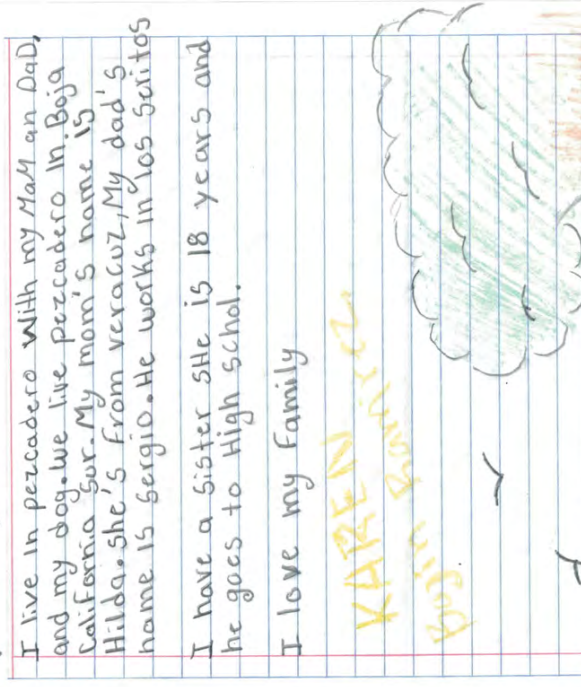 I live in pezcadero with my MaM an DaD,
and my dog. we live pezcadero In. Boja
California Sur. My mom's name is
Hilda. she's from veracuz, My dad's
name is sergio. He works in los scritos
I have a sister sHe is 18 years and
he goes to High schol.
I love my Family
KAREN
Bojin Ramirez